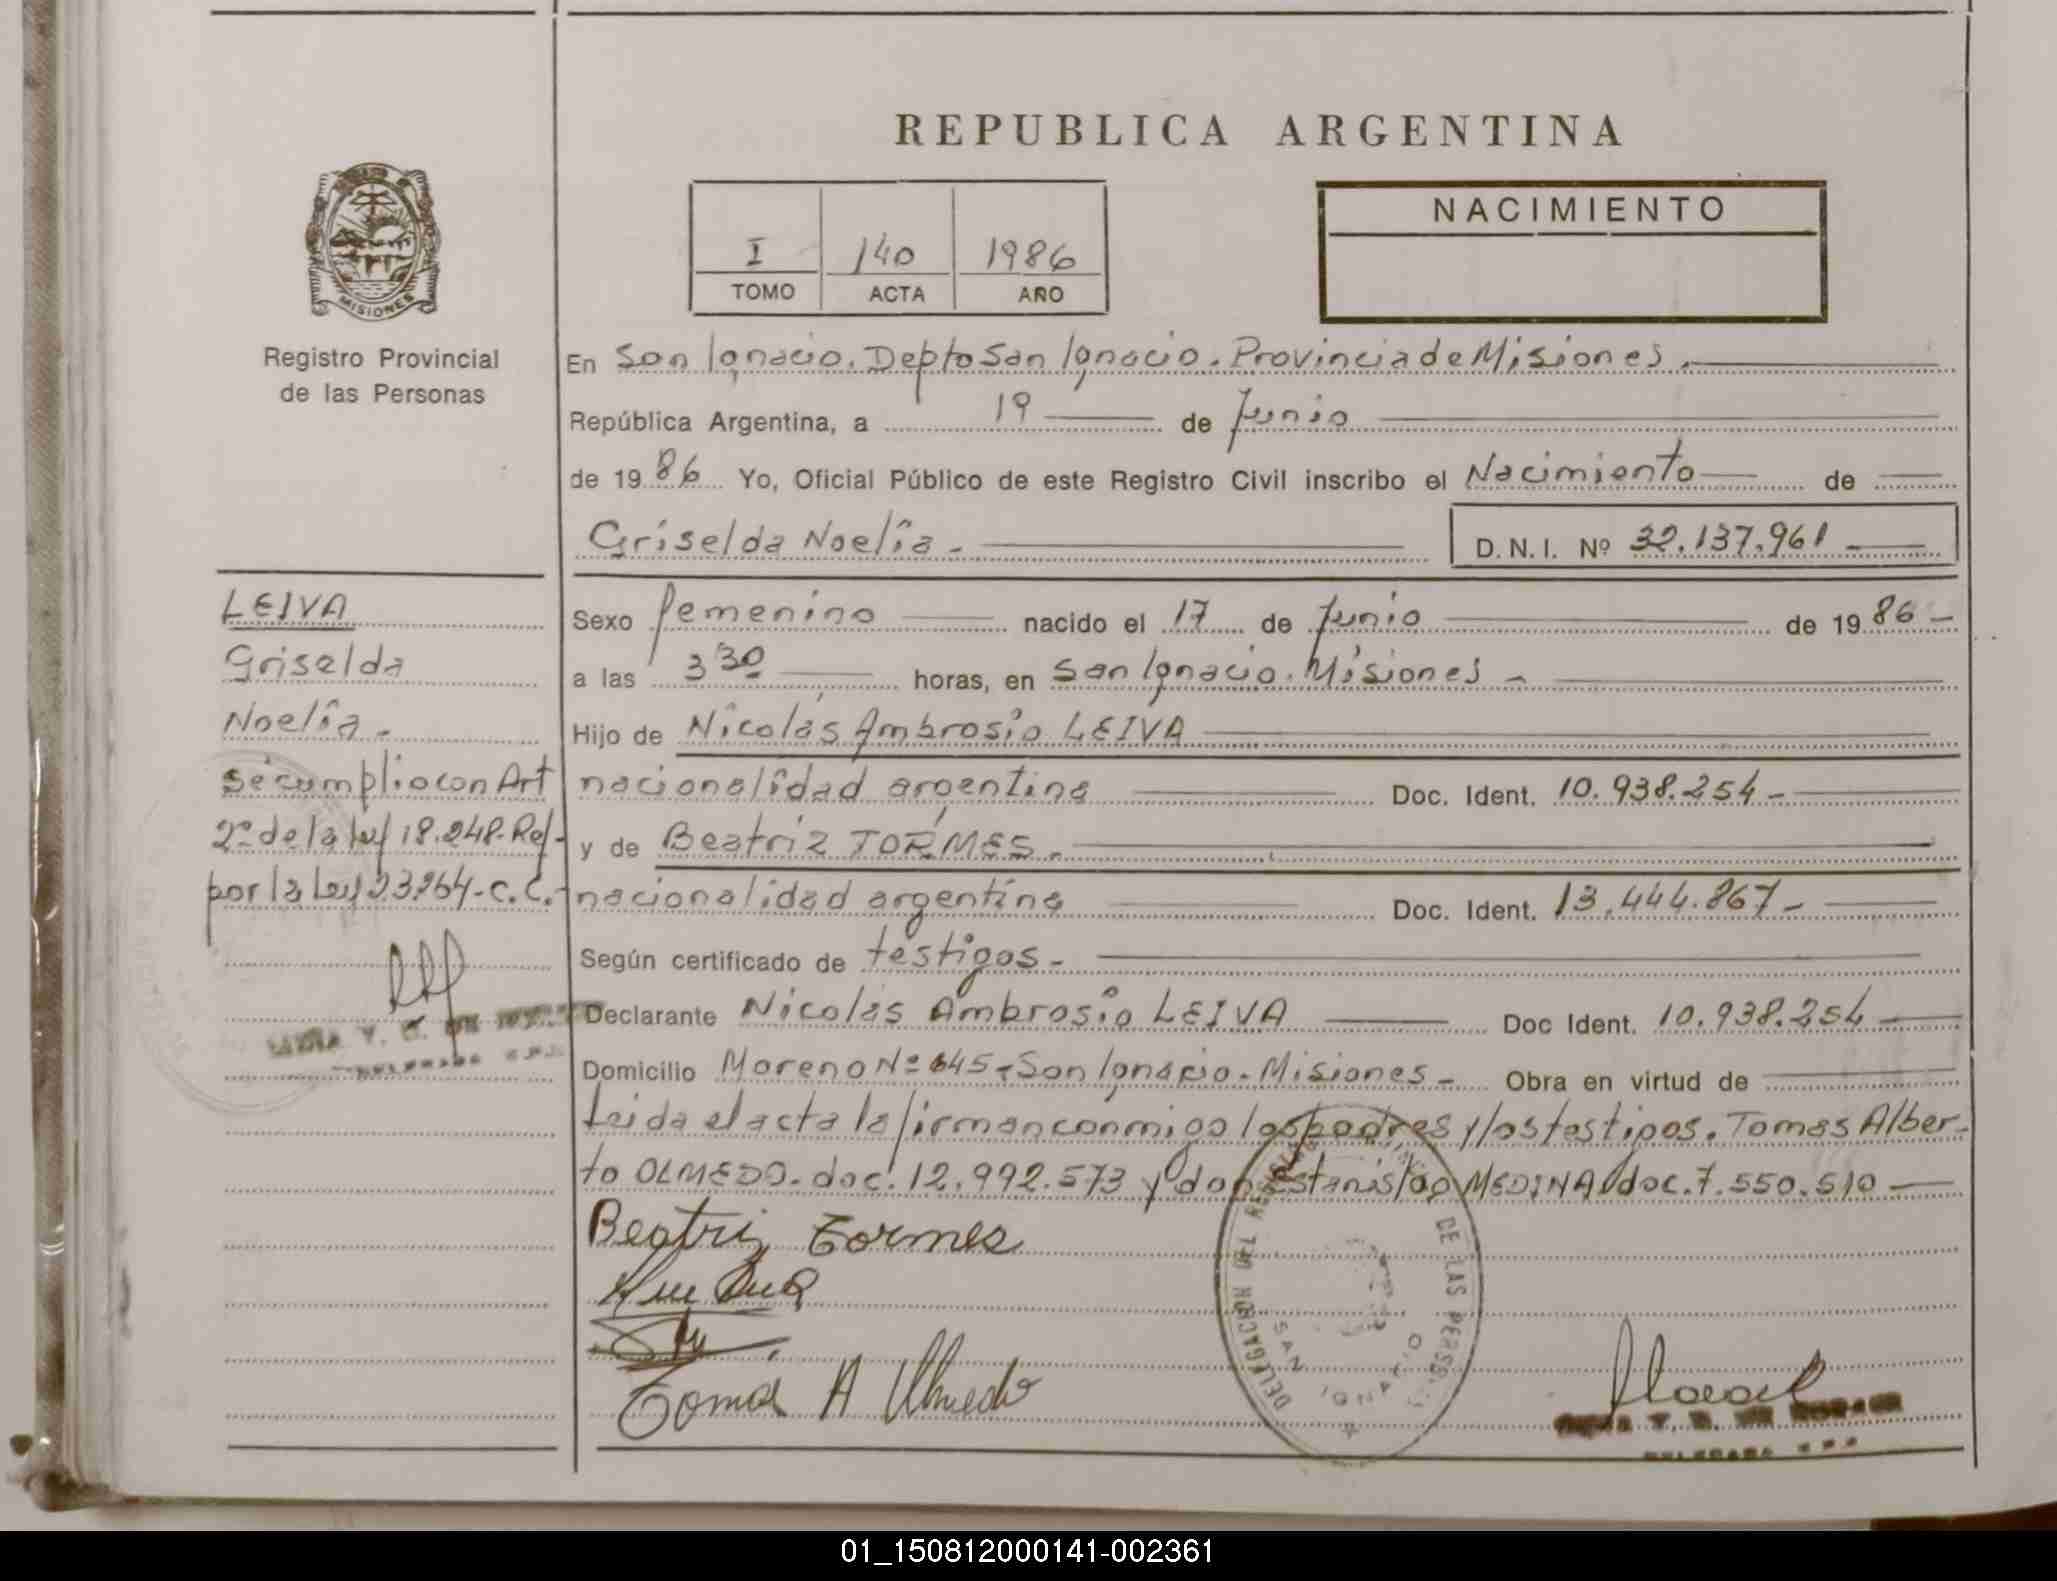 REPUBLICA ARGENTINA
I 140 1986
TOMO ACTA AÑO
NACIMIENTO
MISIONES
Registro Provincial
de las Personas
En San Ignacio. Depto San Ignacio. Provincia de Misiones.
República Argentina, a 19 de Junio
de 1986 Yo, Oficial Público de este Registro Civil inscribo el Nacimiento de
Griselda Noelia - D.N.I. Nº 32.137.961
LEIVA
Griselda
Noelia.
Se cumplio con Art
2º de la ley 18.248. Ref-
por la Ley 23.264-C.C.-
Sexo femenino nacido el 17 de Junio de 1986-
a las 3 30 horas, en San Ignacio. Misiones -
Hijo de Nicolás Ambrosio LEIVA
nacionalidad argentina Doc. Ident. 10.938.254-
y de Beatriz TORMES.
nacionalidad argentina Doc. Ident. 13.444.867-
Según certificado de testigos-
Declarante Nicolás Ambrosio LEIVA Doc Ident. 10.938.254
Domicilio Moreno Nº 645-San Ignacio-Misiones- Obra en virtud de
Leida el acta la firman conmigo los padres y los testigos. Tomas Alber-
to OLMEDO. doc. 12.992.573 y don Estanislao MEDINA doc. 7.550.510
Beatriz Tormes
Tomas A Olmedo
DELEGACION REGISTRO DE LAS PERSO
SAN IGNACIO
DELEGADA
01_150812000141-002361